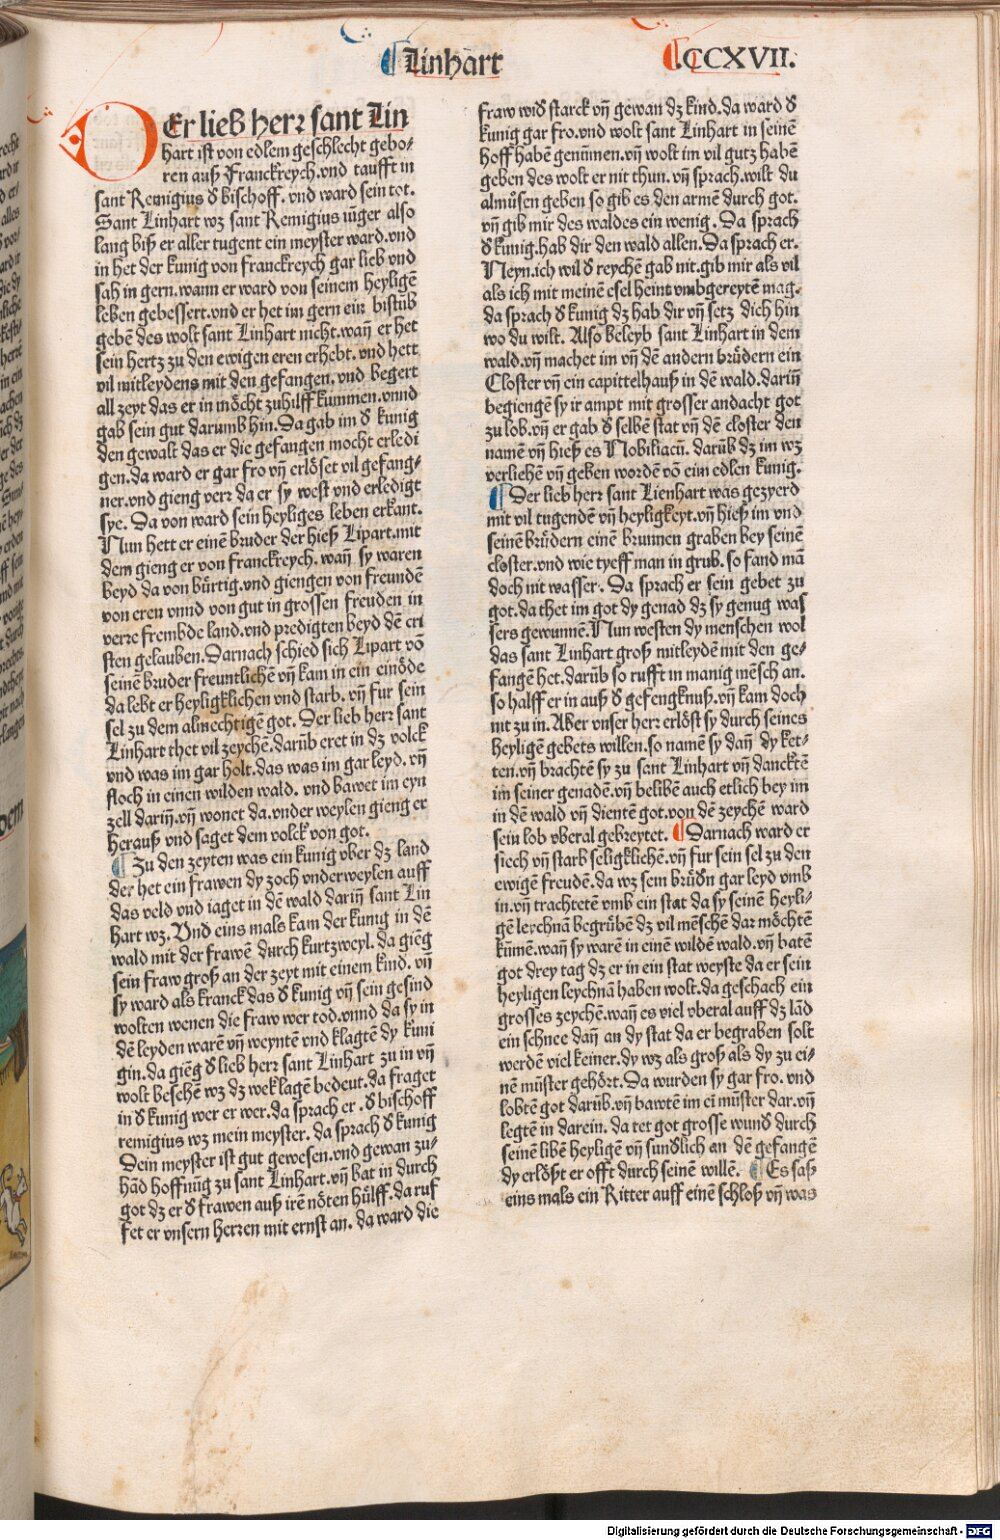 ¶Linhart
¶.CCXVII.
DEr lieb herr sant Lin
hart ist von edlem geschlecht gebo⸗
ren auß Franckreych.vnd taufft in
sant Remigius d̕ bischoff. vnd ward sein tot.
Sant Linhart wz sant Remigius iüger also
lang biß er aller tugent ein meyster ward.vnd
in het der kunig von franckreych gar lieb vnd
sah in gern.wann er ward von seinem heyligē
leben gebessert.vnd er het im gern ein bistūb
gebē des wolt sant Linhart nicht.wañ er het
sein hertz zu den ewigen eren erhebt. vnd hett
vil mitleydens mit den gefangen. vnd begert
all zeyt das er in möcht zuhilff kummen.vnnd
gab sein gut darumb hin. Da gab im d̕ kunig
den gewalt das er die gefangen mocht erledi
gen.da ward er gar fro vñ erlöset vil gefang⸗
ner.vnd gieng verr da er sy west vnd erledigt
sye. Da von ward sein heyliges leben erkant.
Nun hett er einē bruder der hieß Lipart.mit
dem gieng er von franckreych. wañ sy waren
beyd da von bürtig.vnd giengen von freundē
von eren vnnd von gut in grossen freuden in
verre frembde land.vnd predigten beyd dē cri
sten gelauben.Darnach schied sich Lipart vō
seinē bruder freuntlichē vñ kam in ein einöde
da lebt er heyligklichen vnd starb. vñ fur sein
sel zu dem almechtigē got. Der lieb herr sant
Linhart thet vil zeychē.darūb eret in dz volck
vnd was im gar holt.das was im gar leyd. vñ
floch in einen wilden wald. vnd bawet im eyn
zell dariñ.vñ wonet da.vnder weylen gieng er
herauß vnd saget dem volck von got.
¶ Zu den zeyten was ein kunig vber dz land
der het ein frawen dy zoch vnderweylen auff
das veld vnd iaget in dē wald dariñ sant Lin
hart wz. Vnd eins mals kam der kunig in dē
wald mit der frawē durch kurtzweyl. da giēg
sein fraw groß an der zeyt mit einem kind. vñ
sy ward als kranck das d̕ kunig vñ sein gesind
wolten wenen die fraw wer tod.vnnd da sy in
dē leyden warē vñ weyntē vnd klagtē dy kuni
gin.da giēg d̕ lieb herr sant Linhart zu in vñ
wolt besehē wz dz weklagē bedeut.da fraget
in d̕ kunig wer er wer.da sprach er . d̕ bischoff
remigius wz mein meyster. da sprach d̕ kunig
Dein meyster ist gut gewesen.vnd gewan zu⸗
hād hoffnūg zu sant Linhart.vñ bat in durch
got dz er d̕ frawen auß irē nöten hülff.da ruf
fet er vnsern herren mit ernst an. da ward die
fraw wid̕ starck vñ gewan dz kind.da ward d̕
kunig gar fro.vnd wolt sant Linhart in seinē
hoff habē genūmen.vñ wolt im vil gutz habē
geben des wolt er nit thun. vñ sprach.wilt du
almůsen geben so gib es den armē durch got.
vñ gib mir des waldes ein wenig. Da sprach
d̕ kunig.hab dir den wald allen. Da sprach er.
Neyn.ich wil d̕ reychē gab nit.gib mir als vil
als ich mit meinē esel heint vmbgereytē mag.
da sprach d̕ kunig dz hab dir vñ setz dich hin
wo du wilt. Also beleyb sant Linhart in dem
wald.vñ machet im vñ dē andern brüdern ein
Closter vñ ein capittelhauß in dē wald.dariñ
begiengē sy ir ampt mit grosser andacht got
zu lob.vñ er gab d̕ selbē stat vñ dē closter den
namē vñ hieß es Nobiliacū. darūb dz im wz
verlihē vñ geben wordē vō eim edlen kunig.
¶ Der lieb herr sant Lienhart was gezyerd
mit vil tugendē vñ heyligkeyt.vñ hieß im vnd
seinē brüdern einē brunnen graben bey seinē
closter.vnd wie tyeff man in grub. so fand mā
doch nit wasser. Da sprach er sein gebet zu
got.da thet im got dy genad dz sy genug was
sers gewunnē.Nun westen dy menschen wol
das sant Linhart groß mitleydē mit den ge⸗
fangē het.darūb so rufft in manig mēsch an.
so halff er in auß d̕ gefengknuß.vñ kam doch
nit zu in. Aber vnser herr erlöst sy durch seines
heyligē gebets willen.so namē sy dañ dy ket⸗
ten.vñ brachtē sy zu sant Linhart vñ dancktē
im seiner genadē.vñ belibē auch etlich bey im
in dē wald vñ dientē got.von dē zeychē ward
sein lob vberal gebreytet. ¶Darnach ward er
siech vñ starb seligklichē.vñ fur sein sel zu den
ewigē freudē.da wz sein brüd̕n gar leyd vmb
in.vñ trachtetē vmb ein stat da sy seinē heyli⸗
gē leychnā begrübē dz vil mēschē dar möchtē
kūmē.wañ sy warē in einē wildē wald.vñ batē
got drey tag dz er in ein stat weyste da er sein
heyligen leychnā haben wolt.da geschach ein
grosses zeychē.wañ es viel vberal auff dz lād
ein schnee dañ an dy stat da er begraben solt
werdē viel keiner.dy wz als groß als dy zu ei⸗
nē münster gehört. Da wurden sy gar fro. vnd
lobtē got darūb.vñ bawtē im ei münster dar.vñ
legtē in darein. da tet got grosse wund̕ durch
seinē libē heyligē vñ sund̕lich an dē gefangē
dy erlößt er offt durch seinē willē. ¶ Es saß
eins mals ein Ritter auff einē schloß vñ was
Digitalisierung gefördert durch die Deutsche Forschungsgemeinschaft - DFG